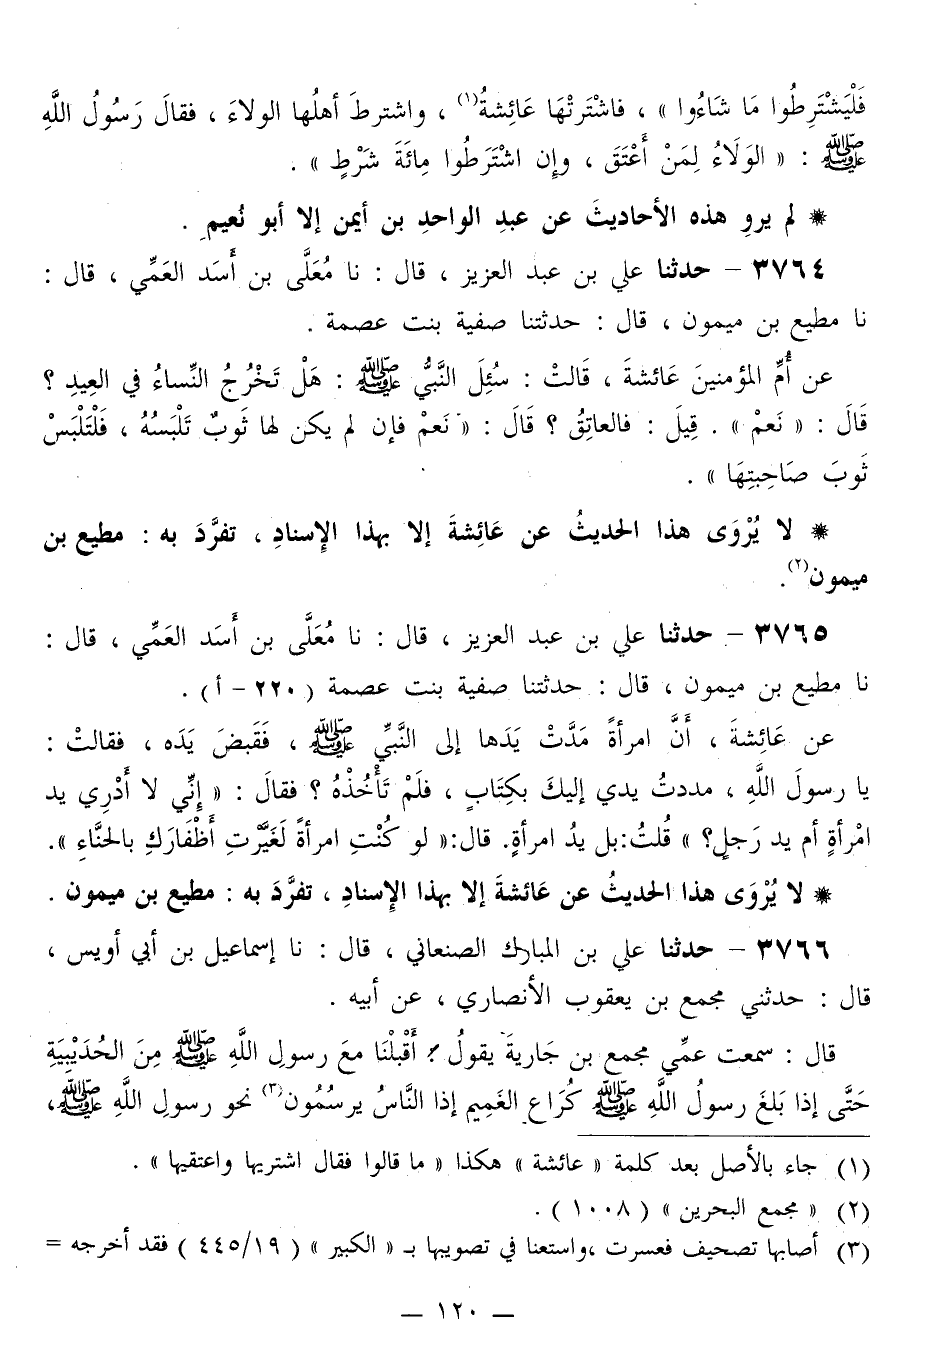 فَلْيَشْتَرِطُوا مَا شَاءُوا » ، فاشْتَرَتْهَا عَائِشةُ(١) ، واشترطَ أهلُها الولاءَ ، فقالَ رَسُولُ اللَّهِ
ﷺ : « الوَلَاءُ لِمَنْ أَعْتَقَ ، وإِن اشْتَرَطُوا مِائَةَ شَرْطٍ » .
* لم يروِ هذه الأحاديثَ عن عبدِ الواحدِ بن أيمن إلا أبو نُعيمٍ .
٣٧٦٤ - حدثنا علي بن عبد العزيز ، قال : نا مُعَلَّى بن أَسَد العَمِّي ، قال :
نا مطيع بن ميمون ، قال : حدثتنا صفية بنت عصمة .
عن أُمِّ المؤمنينَ عَائشةَ ، قَالتْ : سُئِلَ النَّبيُّ ﷺ : هَلْ تَخْرُجُ النِّساءُ في العِيدِ ؟
قَالَ : « نَعمْ » . قِيلَ : فالعاتِقُ ؟ قَالَ : « نَعمْ فإن لم يكن لها ثَوبٌ تَلْبَسُهُ ، فَلْتَلْبَسْ
ثَوبَ صَاحِبتِهَا » .
* لا يُرْوَى هذا الحديثُ عن عَائِشةَ إلا بهذا الإسنادِ ، تفرَّدَ به : مطيع بن
ميمون(٢).
٣٧٦٥ - حدثنا علي بن عبد العزيز ، قال : نا مُعَلَّى بن أَسَد العَمِّي ، قال :
نا مطيع بن ميمون ، قال : حدثتنا صفية بنت عصمة ( ٢٢٠ - أ ) .
عن عَائِشةَ ، أَنَّ امرأةً مَدَّتْ يَدَها إلى النَّبيِّ ﷺ ، فَقَبضَ يَدَه ، فقالتْ :
يا رسولَ اللَّهِ ، مددتُ يدي إليكَ بكِتابٍ ، فلَمْ تَأْخُذْهُ ؟ فقالَ : « إِنِّي لا أَدْرِي يد
امْرأةٍ أم يد رَجلٍ؟ » قُلتُ:بل يدُ امرأةٍ. قال:« لو كُنْتِ امرأةً لَغَيَّرْتِ أَظْفَارَكِ بالحنَّاءِ ».
* لا يُرْوَى هذا الحديثُ عن عَائشةَ إلا بهذا الإسنادِ ، تفرَّدَ به : مطيع بن ميمون .
٣٧٦٦ - حدثنا علي بن المبارك الصنعاني ، قال : نا إسماعيل بن أبي أويس ،
قال : حدثني مجمع بن يعقوب الأنصاري ، عن أبيه .
قال : سمعت عمِّي مجمع بن جَاريةَ يقولُ : أَقْبلْنَا معَ رسولِ اللَّهِ ﷺ مِنَ الحُدَيْبِيَةِ
حَتَّى إذا بَلغَ رسولُ اللَّهِ ﷺ كُرَاع الغَمِيم إذا النَّاسُ يرسُمُون(٣) نحو رسولِ اللَّهِ ﷺ،
(١) جاء بالأصل بعد كلمة « عائشة » هكذا « ما قالوا فقال اشتريها واعتقيها » .
(٢) « مجمع البحرين » ( ١٠٠٨ ) .
(٣) أصابها تصحيف فعسرت ،واستعنا في تصويبها بـ « الكبير » ( ٤٤٥/١٩ ) فقد أخرجه =
— ١٢٠ —